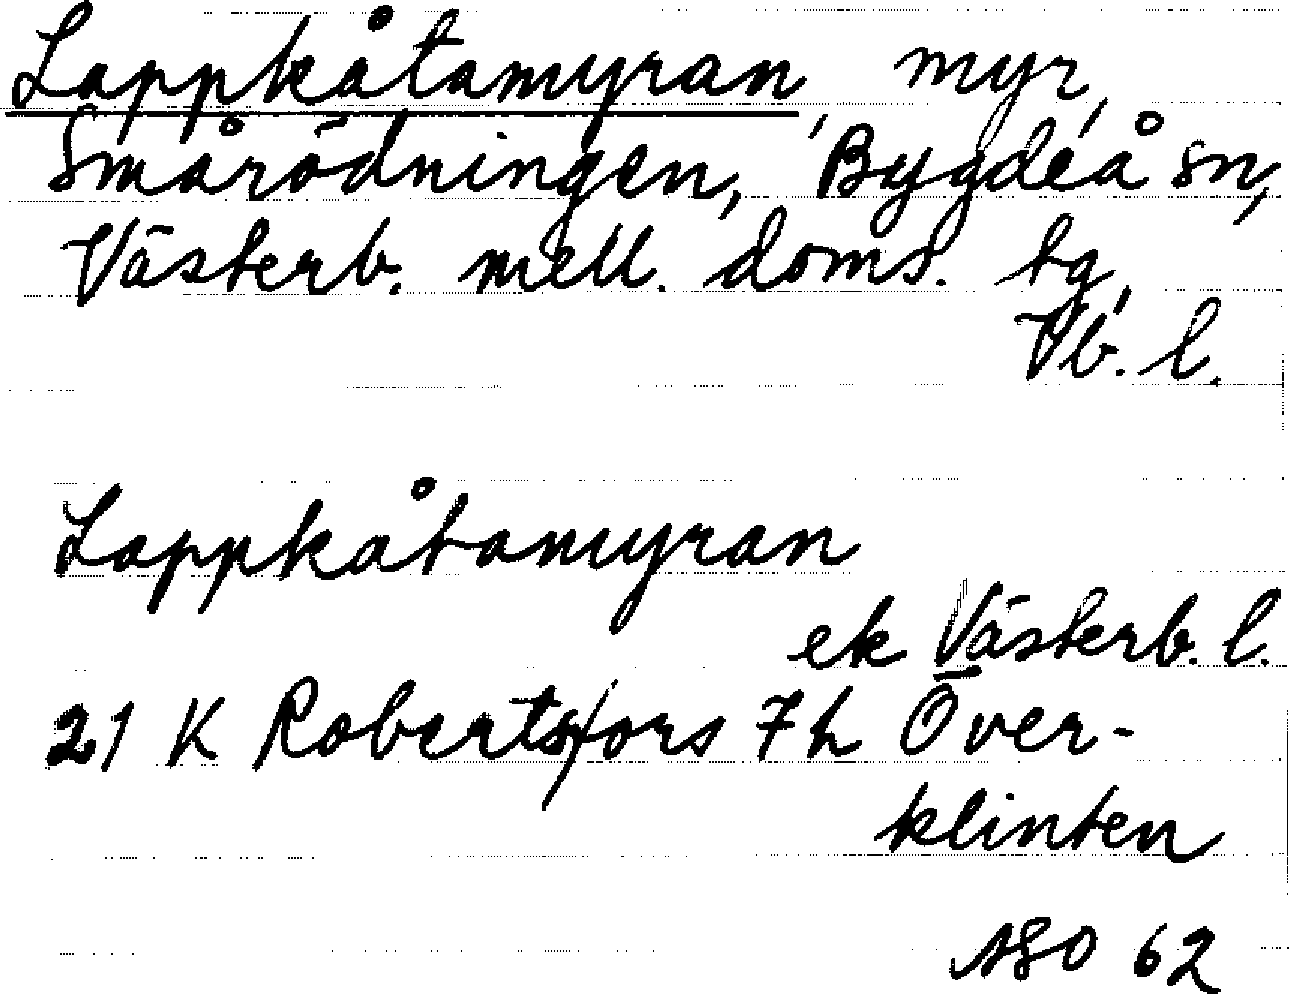 Lappkåtamyran, myr,
Smårödningen, Bygdeå sn,
Västerb. mell. doms. tg,
Vb. l.
Lappkåtamyran
ek Västerb. l.
21 K Robertsfors 7h Över-
klinten
ASO 62